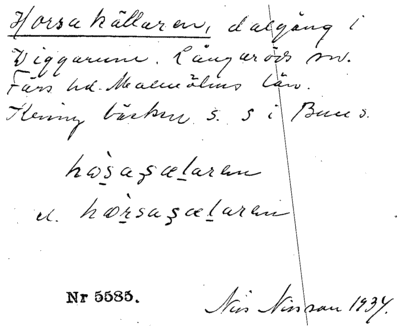 Horsakällaren, dalgång i
Viggarum. Långaröds sn.
Färs hd. Malmöhus län.
Kring bäcken s. s i Bues.
hɷ̀ṣaʂæḻaren
el. hɷ̀rsaʂæḻaren
Nr 5585.
Nils Nilsson 1934.